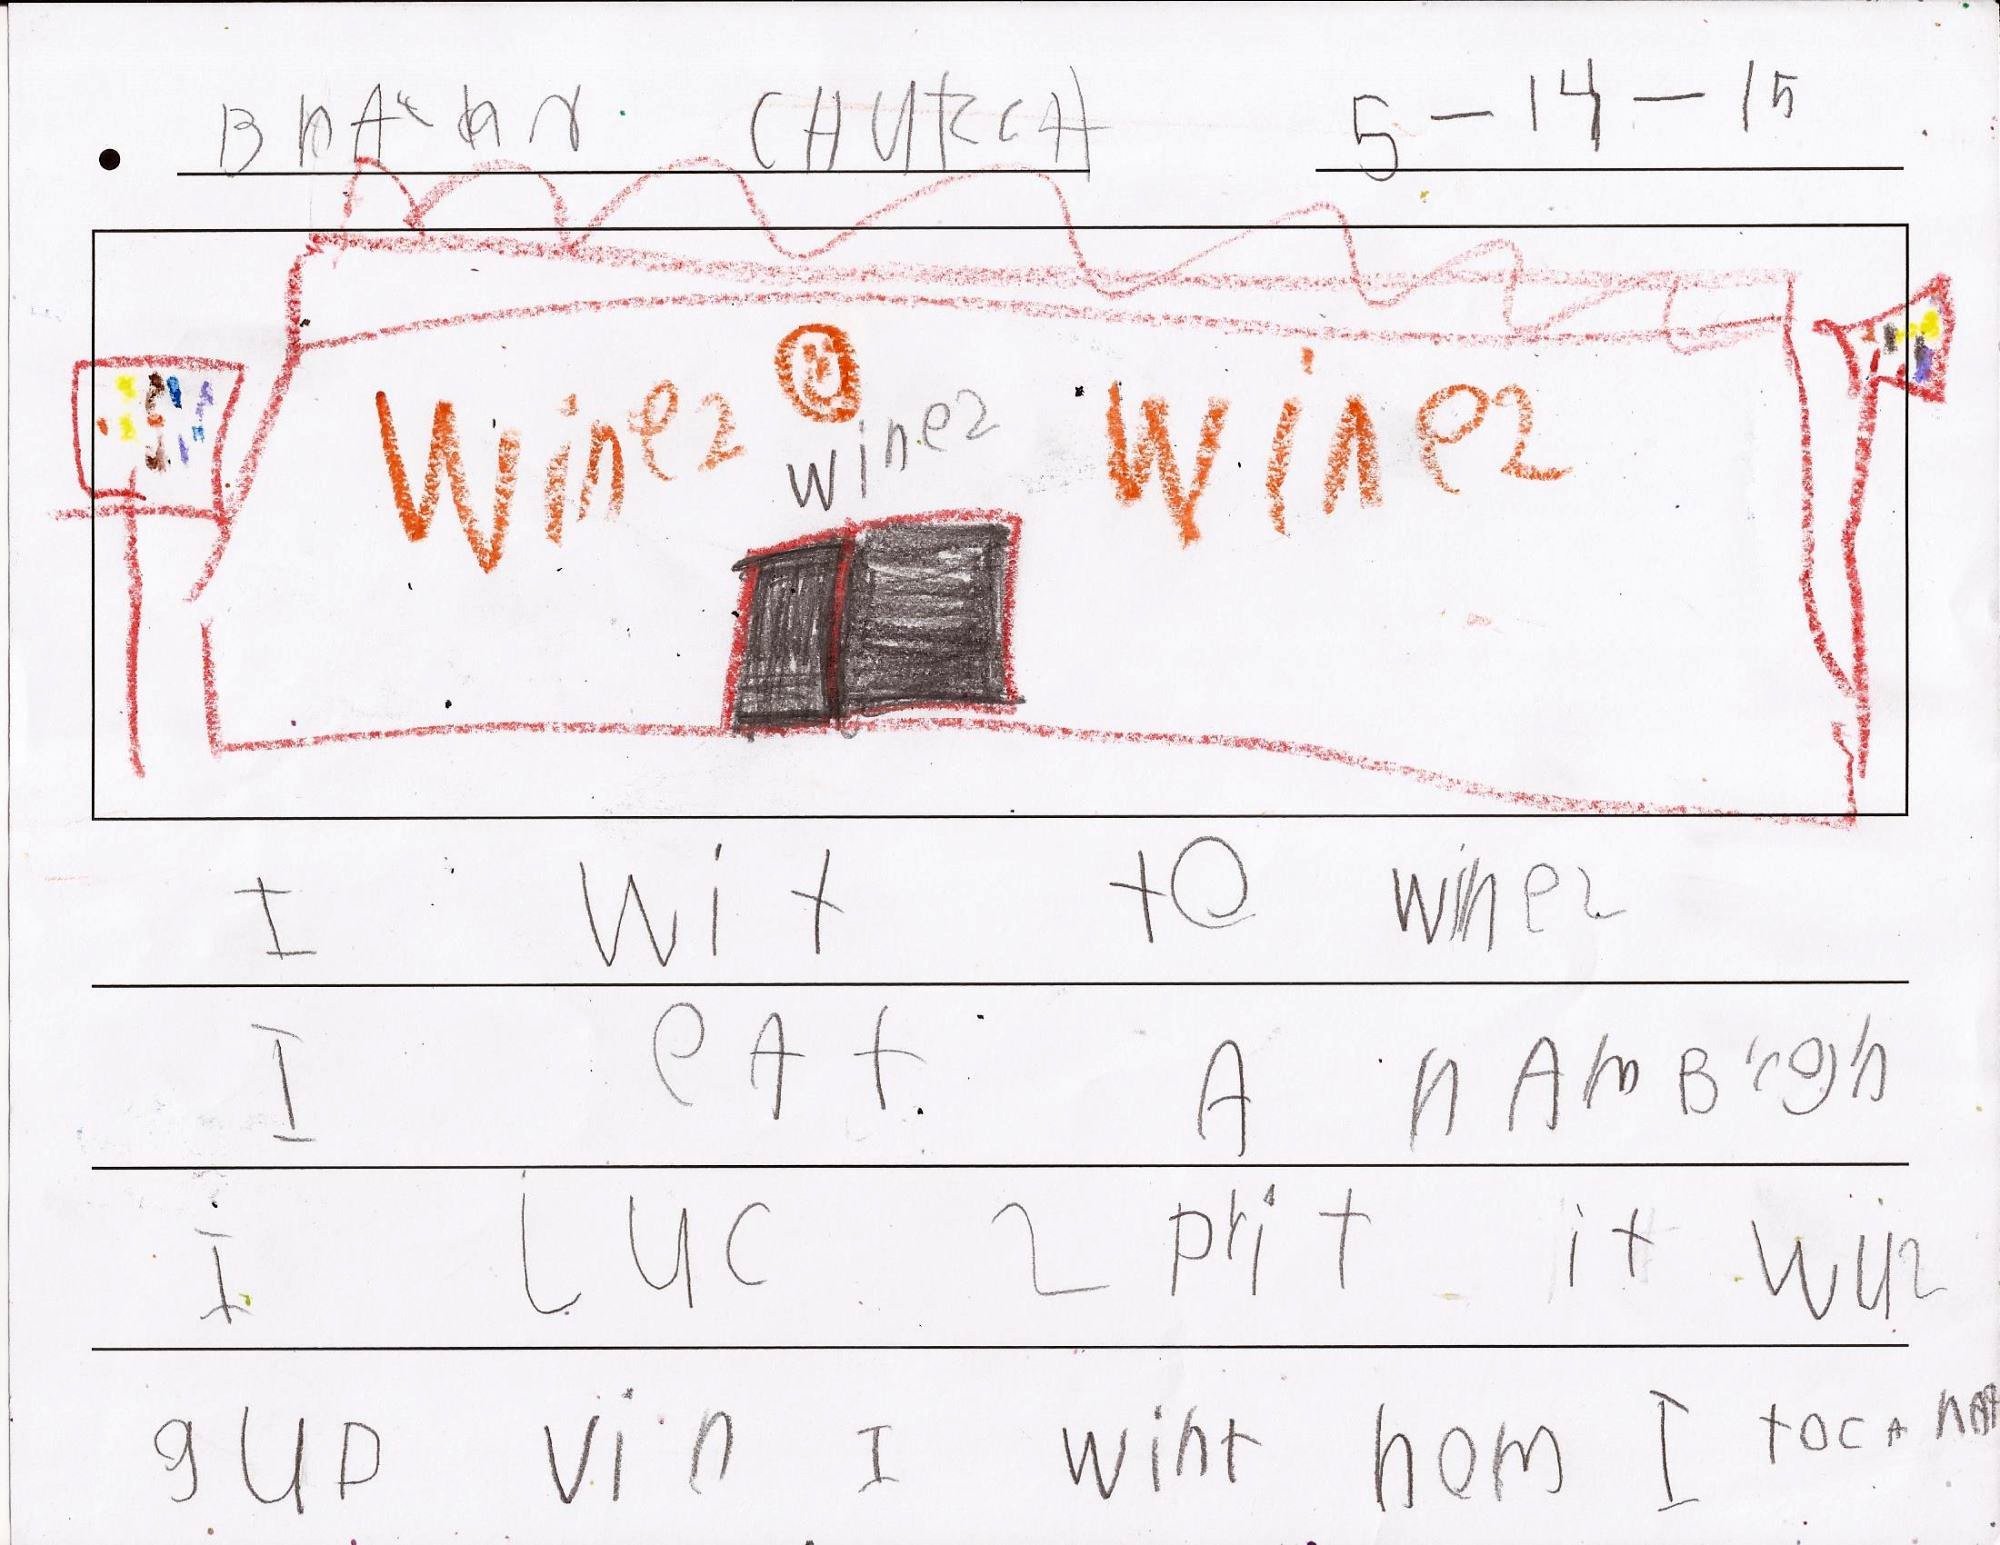 CHURCH 5-14-15
wine2 wine2 wine2
I wit to wine2
I eAt A hAmBrgh
I LUC 2 Prit it wu2
gUD vin I wint hom I tOC A nAP